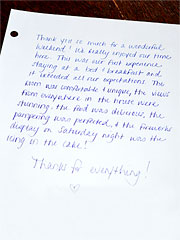 Thank you so much for a wonderful
weekend! We really enjoyed our time
here. This was our first experience
staying at a bed & breakfast and
it exceeded all our expectations. The
room was comfortable & unique, the views
from everywhere in the house were
stunning, the food was delicious, the
pampering was perfected, & the fireworks
display on Saturday night was the
icing on the cake!
Thanks for everything!
♡